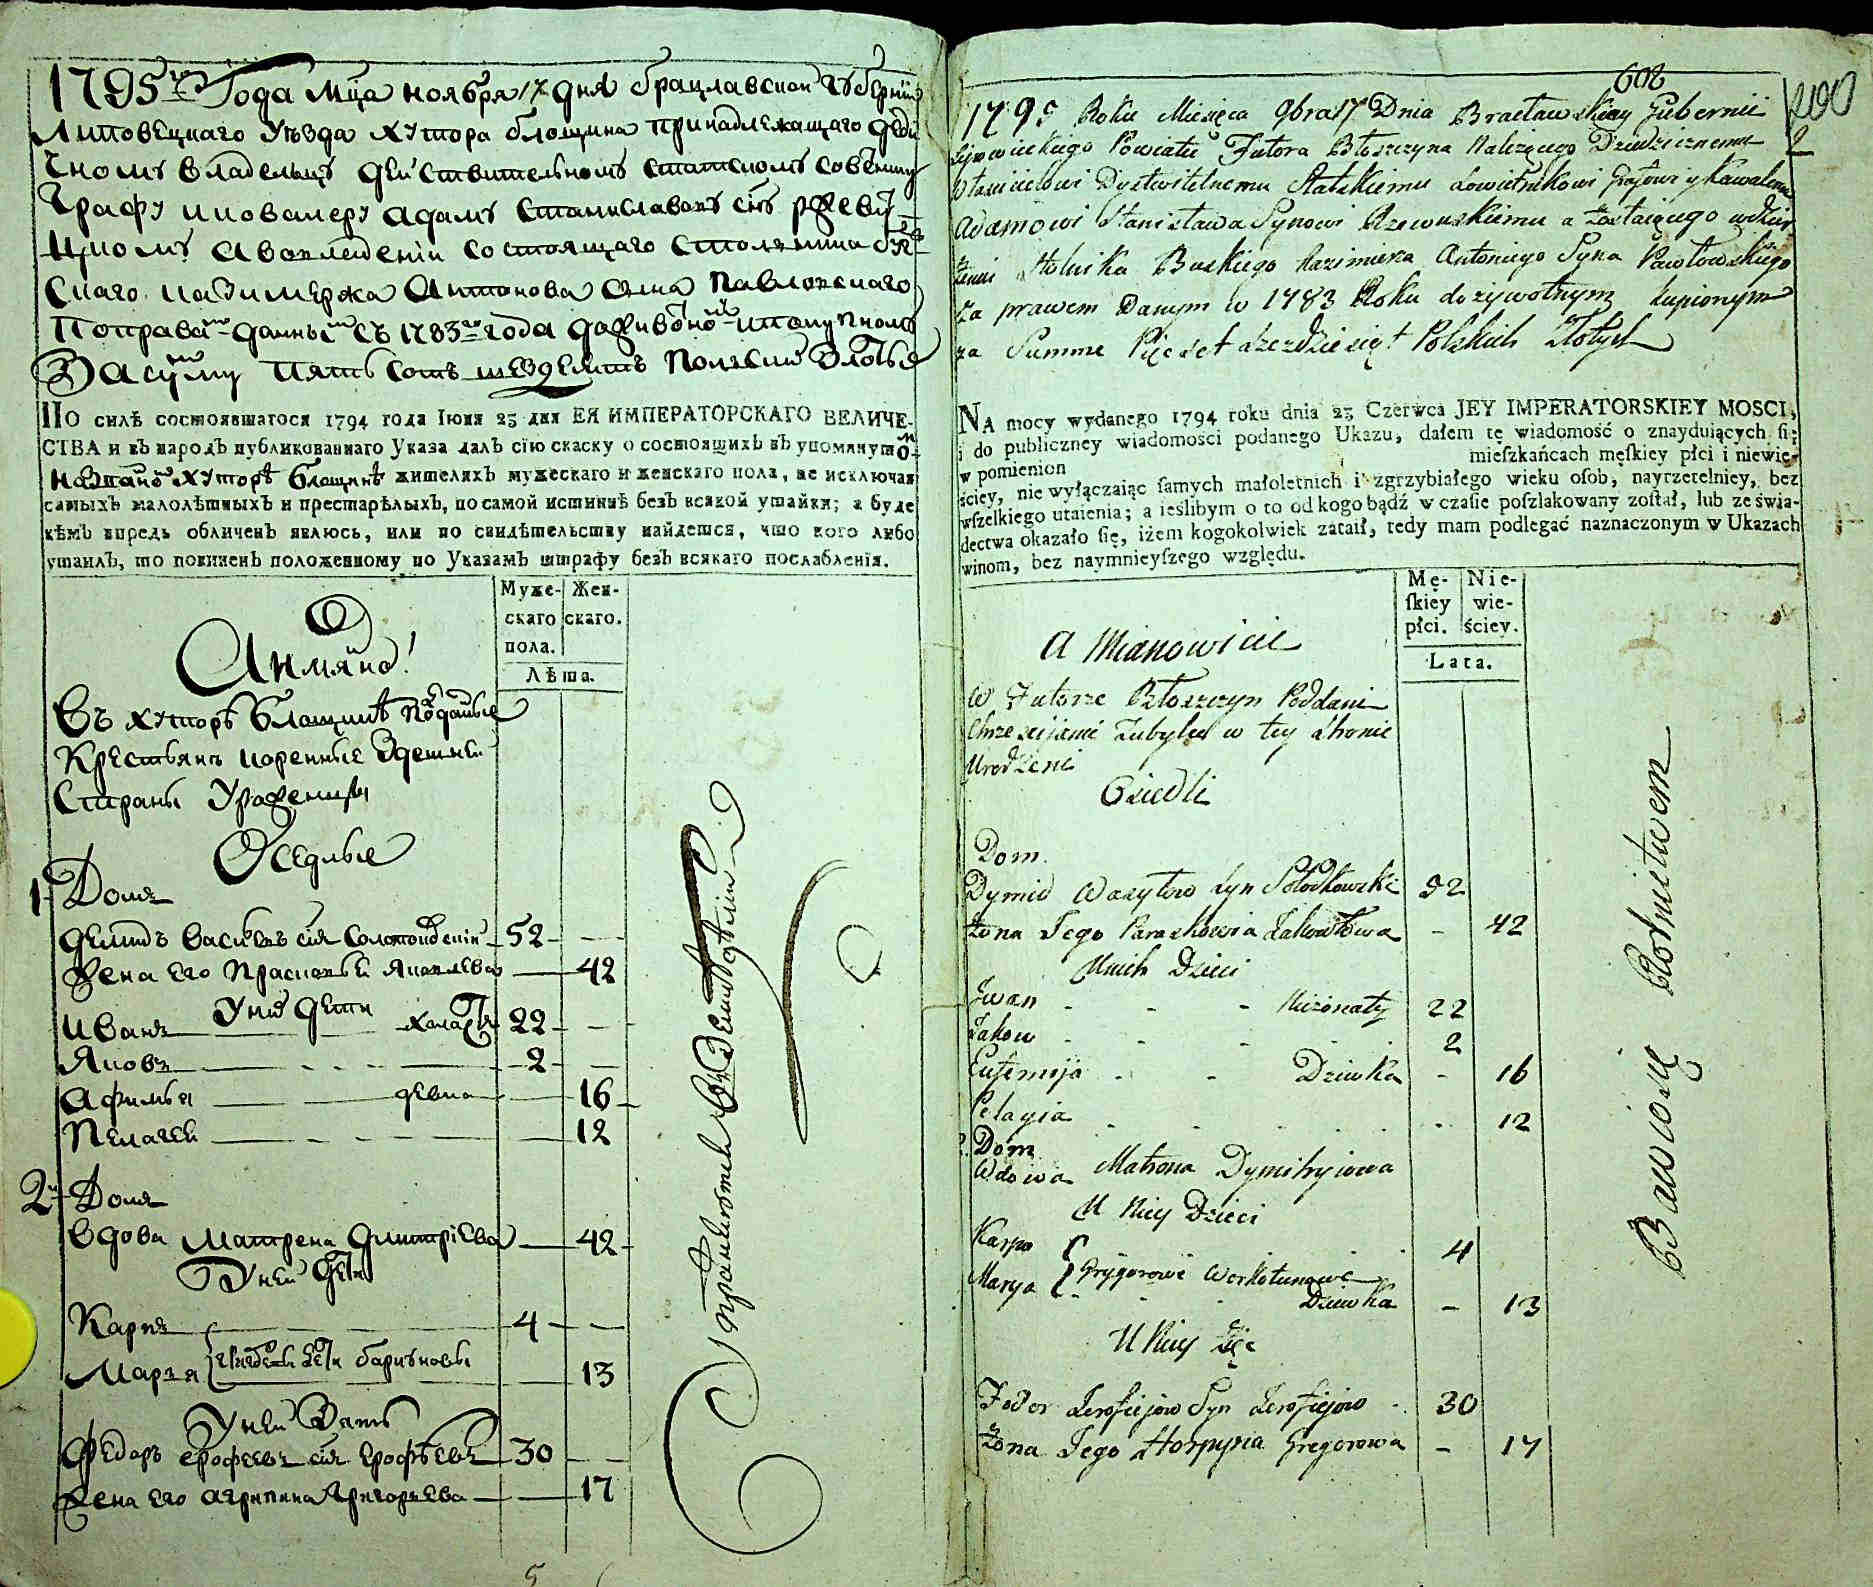 1795го Года мца ноября 17 дня брацлавской губернии
Липовецкаго уезда хутора блощина принадлежащаго
чному владельцу действительному статскому советнику
Графу и кавалеру адаму станиславову сну ржевус
цкому а во владении состоящаго столника бус
скаго казимержа антонова сына павловского
По праву данным съ 1783го года
За суму пять сотъ шездесятъ полских злотых
ПО силѣ состоявшагося 1794 года Іюня 23 дня ЕЯ ИМПЕРАТОРСКАГО ВЕЛИЧЕ-
СТВА и въ народъ публикованнаго Указа далъ сію скаску о состоящихъ въ упомянутом
хуторѣ блощинѣ жителяхъ мужескаго и женскаго пола, не исключая
самыхъ малолѣтныхъ и престарѣлыхъ, по самой истиннѣ безъ всякой утайки; а буде
кѣмъ впредь обличенъ явлюсь, или по свидѣтельству найдется, что кого либо
утаилъ, то повиненъ положенному по Указамъ штрафу безъ всякаго послабленія.
Муже- Жен-
скаго скаго.
пола.
Лѣта.
А имяно!
Въ хуторѣ блощинѣ поданые
Крестьянъ коренные здешней
Страны урожении
Оседлые
1 Домъ
демидъ василевъ снъ 52
жена его прасковья яковлева 42
у них дети
Иванъ холост 22
Яковъ 2
Афимья девка 16
Пелагея 12
2й Домъ
вдова матрена дмитриева 42
у ней дети
Карпъ 4
Маря 13
у ней зать
Федоръ ерофеевъ снъ ерофѣевъ 30
жена его агрипина григорьева 17
602
200
2
1795 Roku Miesięca 9bra 17 Dnia Bracławskiey Gubernii
Lipowieckiego Powiatu Futora Błoszczyna Należącego Dziedzicznemu
Właścicielowi Dystwitelnemu Statskiemu Sowietnikowi Grafowi y Kawalerowi
Adamowi Stanisława Synowi Rzewuskiemu a zostaiącego w dzier
żeniu Stolnika Buskiego Kazimierza Antoniego Syna Pawłowskiego
za prawem Danym w 1783 Roku dożywotnym kupionym
za Summe Pięcset szezdziesięt Polskich Złotych
NA mocy wydanego 1794 roku dnia 23 Czerwca JEY IMPERATORSKIEY MOSCI,
i do publiczney wiadomosci podanego Ukazu, dałem tę wiadomość o znayduiących się
w pomienion mieszkańcach męskiey płci i niewie-
ściey, nie wyłączaiąc samych małoletnich i zgrzybiałego wieku osob, nayrzetelniey, bez
wszelkiego utaienia; a ieślibym o to od kogo bądź w czasie poszlakowany został, lub ze świa-
dectwa okazało się, iżem kogokolwiek zataił, tedy mam podlegać naznaczonym w Ukazach
winom, bez naymnieyszego względu.
Mę- Nie-
skiey wie-
płci. ściey.
Lata.
A Mianowicie
W Futorze Błoszczyn Poddani
Chrzescijanie w tey stronie
Urodzeni
Osiedli
Dom
Dymid Wasylow Syn Sołodkowski 52
Żona Jego Paraskowia Jakowłowa - 42
U nich Dzieci
Iwan - - - Nieżonaty 22
Jakow - - - 2
Eufemija - - Dziewka - 16
Pelagia - - - 12
2. Dom
Wdowa Matrona Dymitryiowa
U Niey Dzieci
Karpo 4
Marya Grygorowe Dziewka - 13
U Niey Zięć
Fedor Jerofiejow Syn Jerofiejow - 30
Żona Jego Horpyna Gregorowa - 17